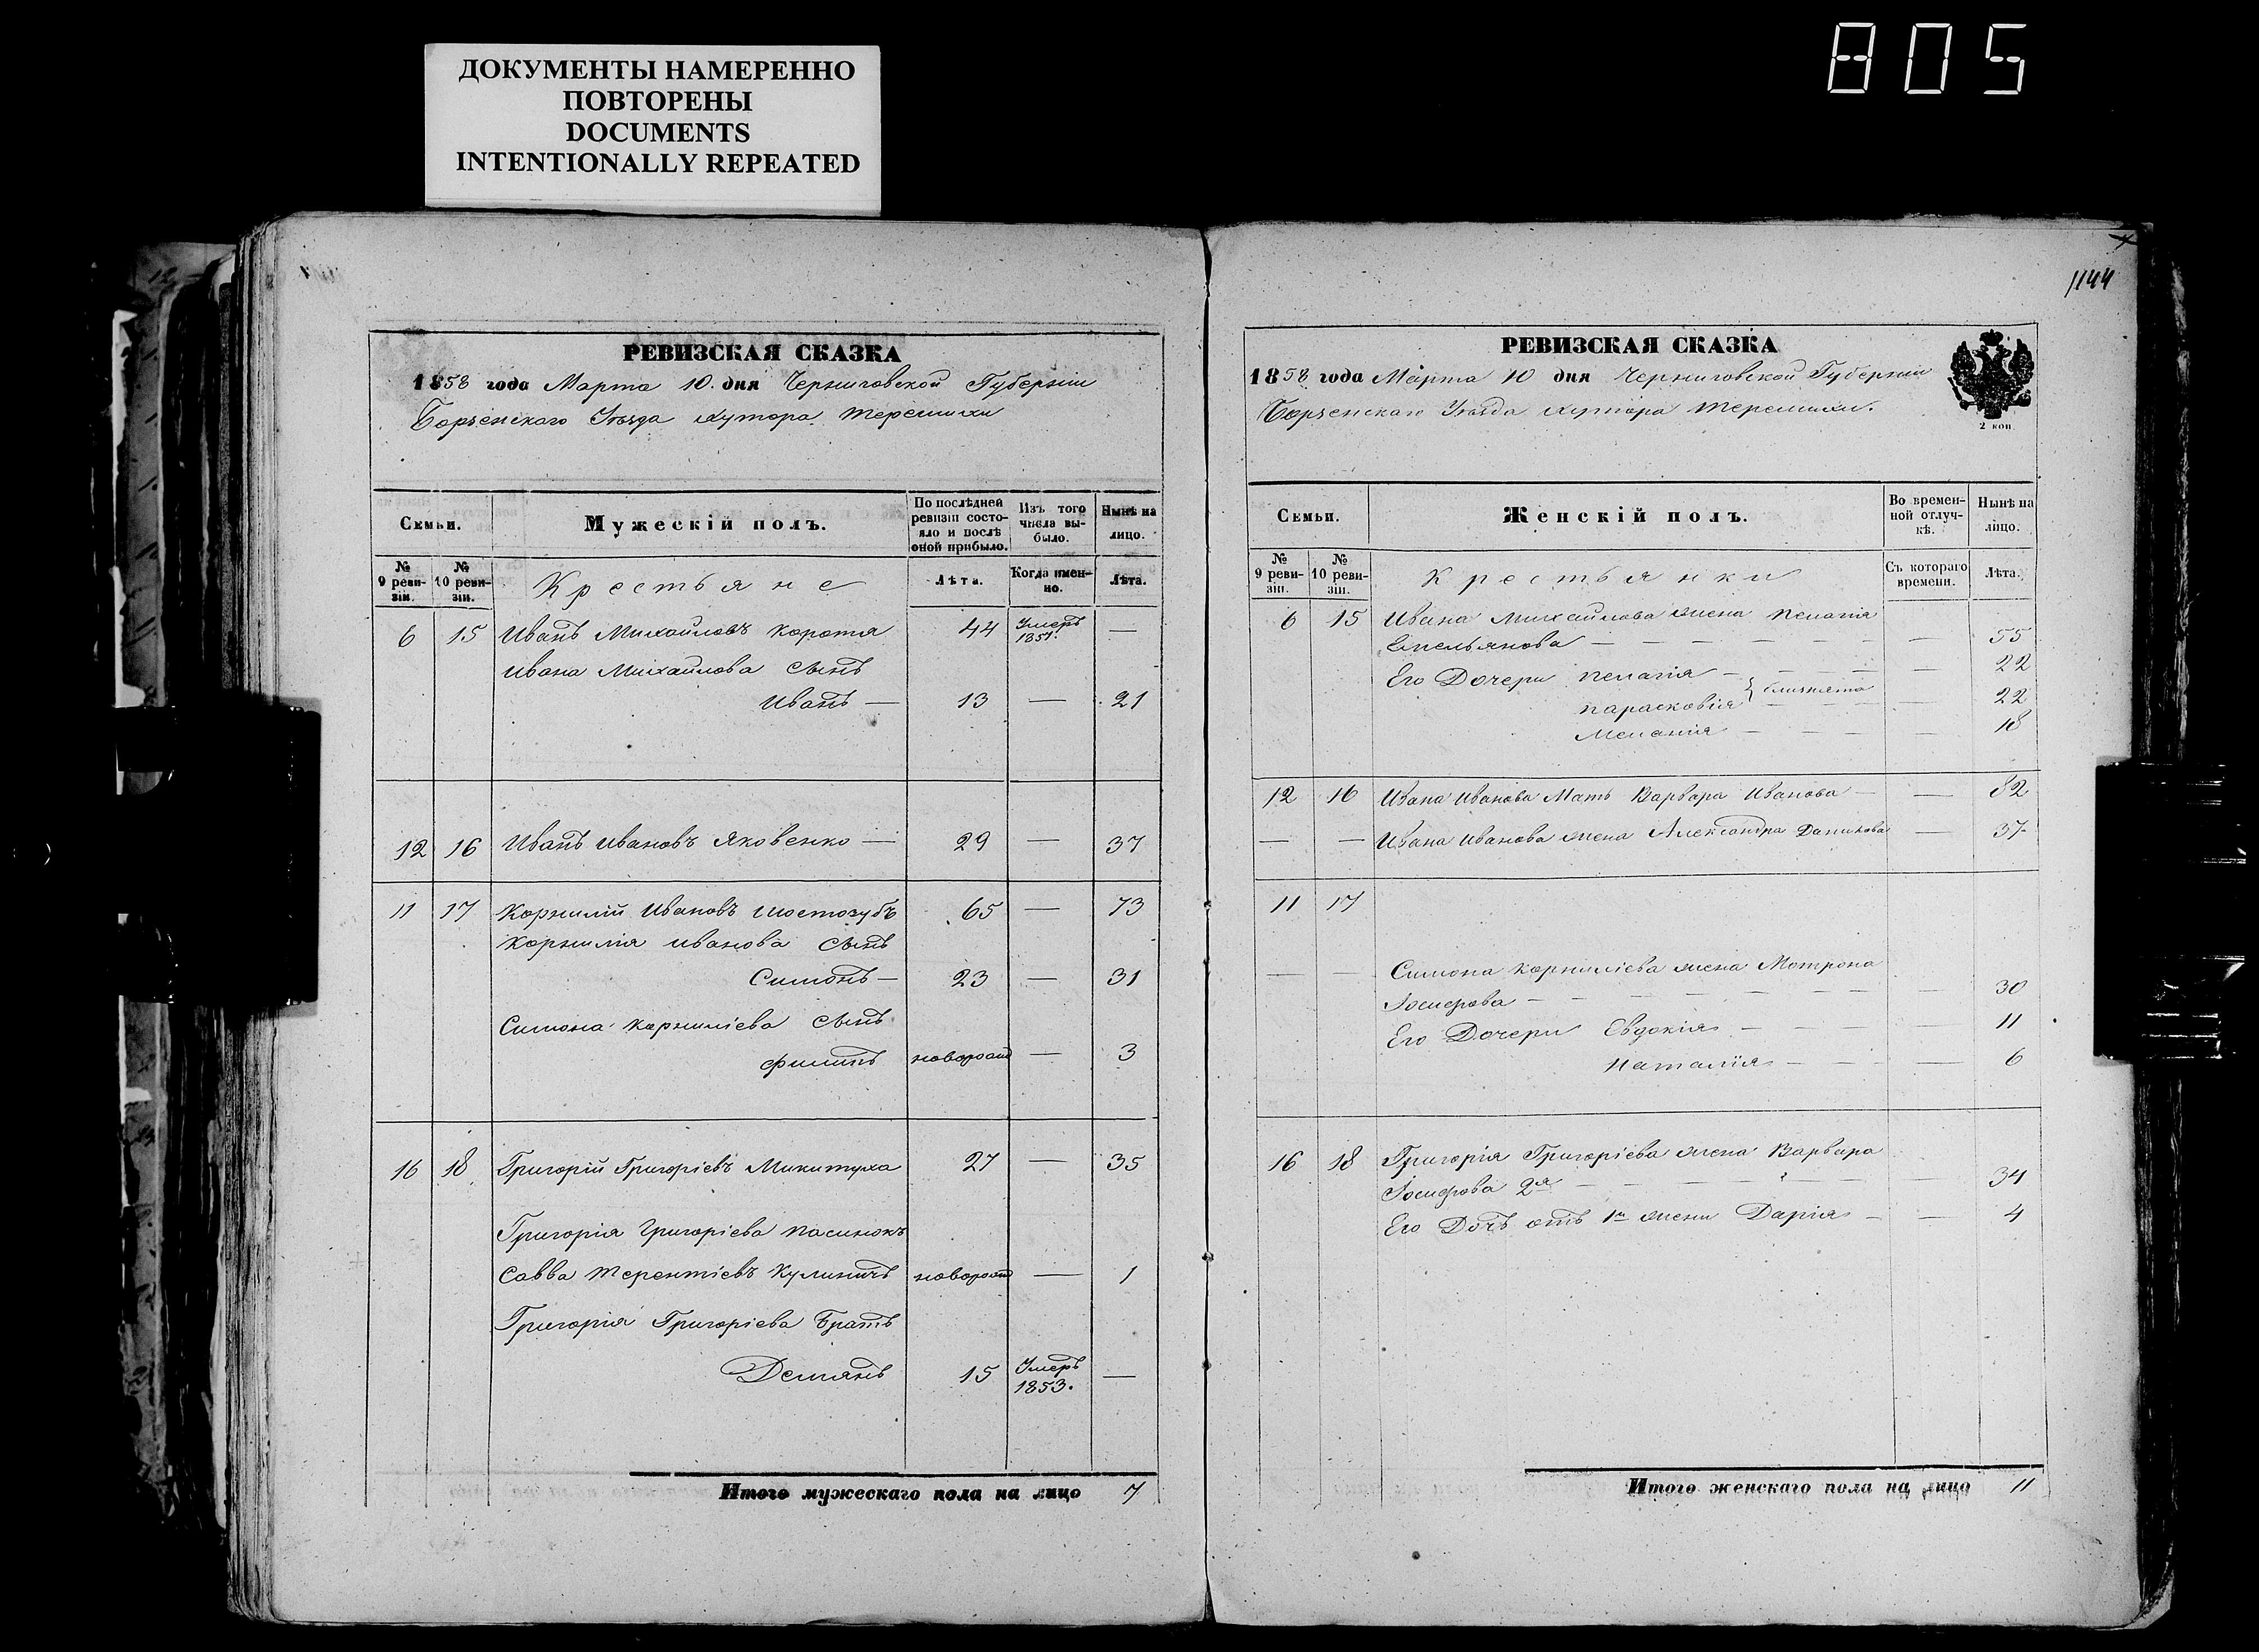 805
ДОКУМЕНТЫ НАМЕРЕННО
ПОВТОРЕНЫ
DOCUMENTS
INTENTIONALLY REPEATED
1144
РЕВИЗСКАЯ СКАЗКА
1858 года Марта 10 дня Черниговской Губерніи
Борзенскаго Уѣзда хутора Терешихи
Семьи. Мужескій полъ. По послѣдней ревизіи состояло и послѣ оной прибыло. Изъ того числа выбыло. Нынѣ на лицо.
№ 9 ревизіи. № 10 ревизіи. Крестьяне Лѣта. Когда именно. Лѣта.
6 15 Иванъ Михайловъ Коротя 44 Умеръ 1851. —
Ивана Михайлова Сынъ
Иванъ — 13 — 21
12 16 Иванъ Ивановъ Яковенко — 29 — 37
11 17 Корнилій Ивановъ Шостозубъ 65 — 73
Корнилія Иванова Сынъ
Симонъ — 23 — 31
Симона Корниліева Сынъ
Филипъ новорожд — 3
16 18 Григорій Григоріевъ Микитуха 27 — 35
Григорія Григоріева пасинокъ
Савва Терентіевъ Кулиничъ новорожд — 1
Григорія Григоріева Братъ
Демянъ 15 Умеръ 1853. —
Итого мужескаго пола на лицо 7
РЕВИЗСКАЯ СКАЗКА
1858 года Марта 10 дня Черниговской Губерніи
Борзенскаго Уѣзда хутора Терешихи.
2 коп
Семьи. Женскій полъ. Во временной отлучкѣ. Нынѣ на лицо.
№ 9 ревизіи. № 10 ревизіи. Крестьянки Съ котораго времени. Лѣта.
6 15 Ивана Михайлова жена Пелагія
Емельянова — — 55
Его Дочери Пелагія — — 22
Парасковія } близнята — 22
Меланія — — 18
12 16 Ивана Иванова Мать Варвара Иванова — — 82
— — Ивана Иванова жена Александра Данилова — 37
11 17
— — Симона Корниліева жена Мотрона
Іосифова — — 30
Его Дочери Евдокія — 11
Наталія — — 6
16 18 Григорія Григоріева жена Варвара
Іосифова 2я — — 34
Его Дочь отъ 1й жены Дарія — — 4
Итого женскаго пола на лицо 11